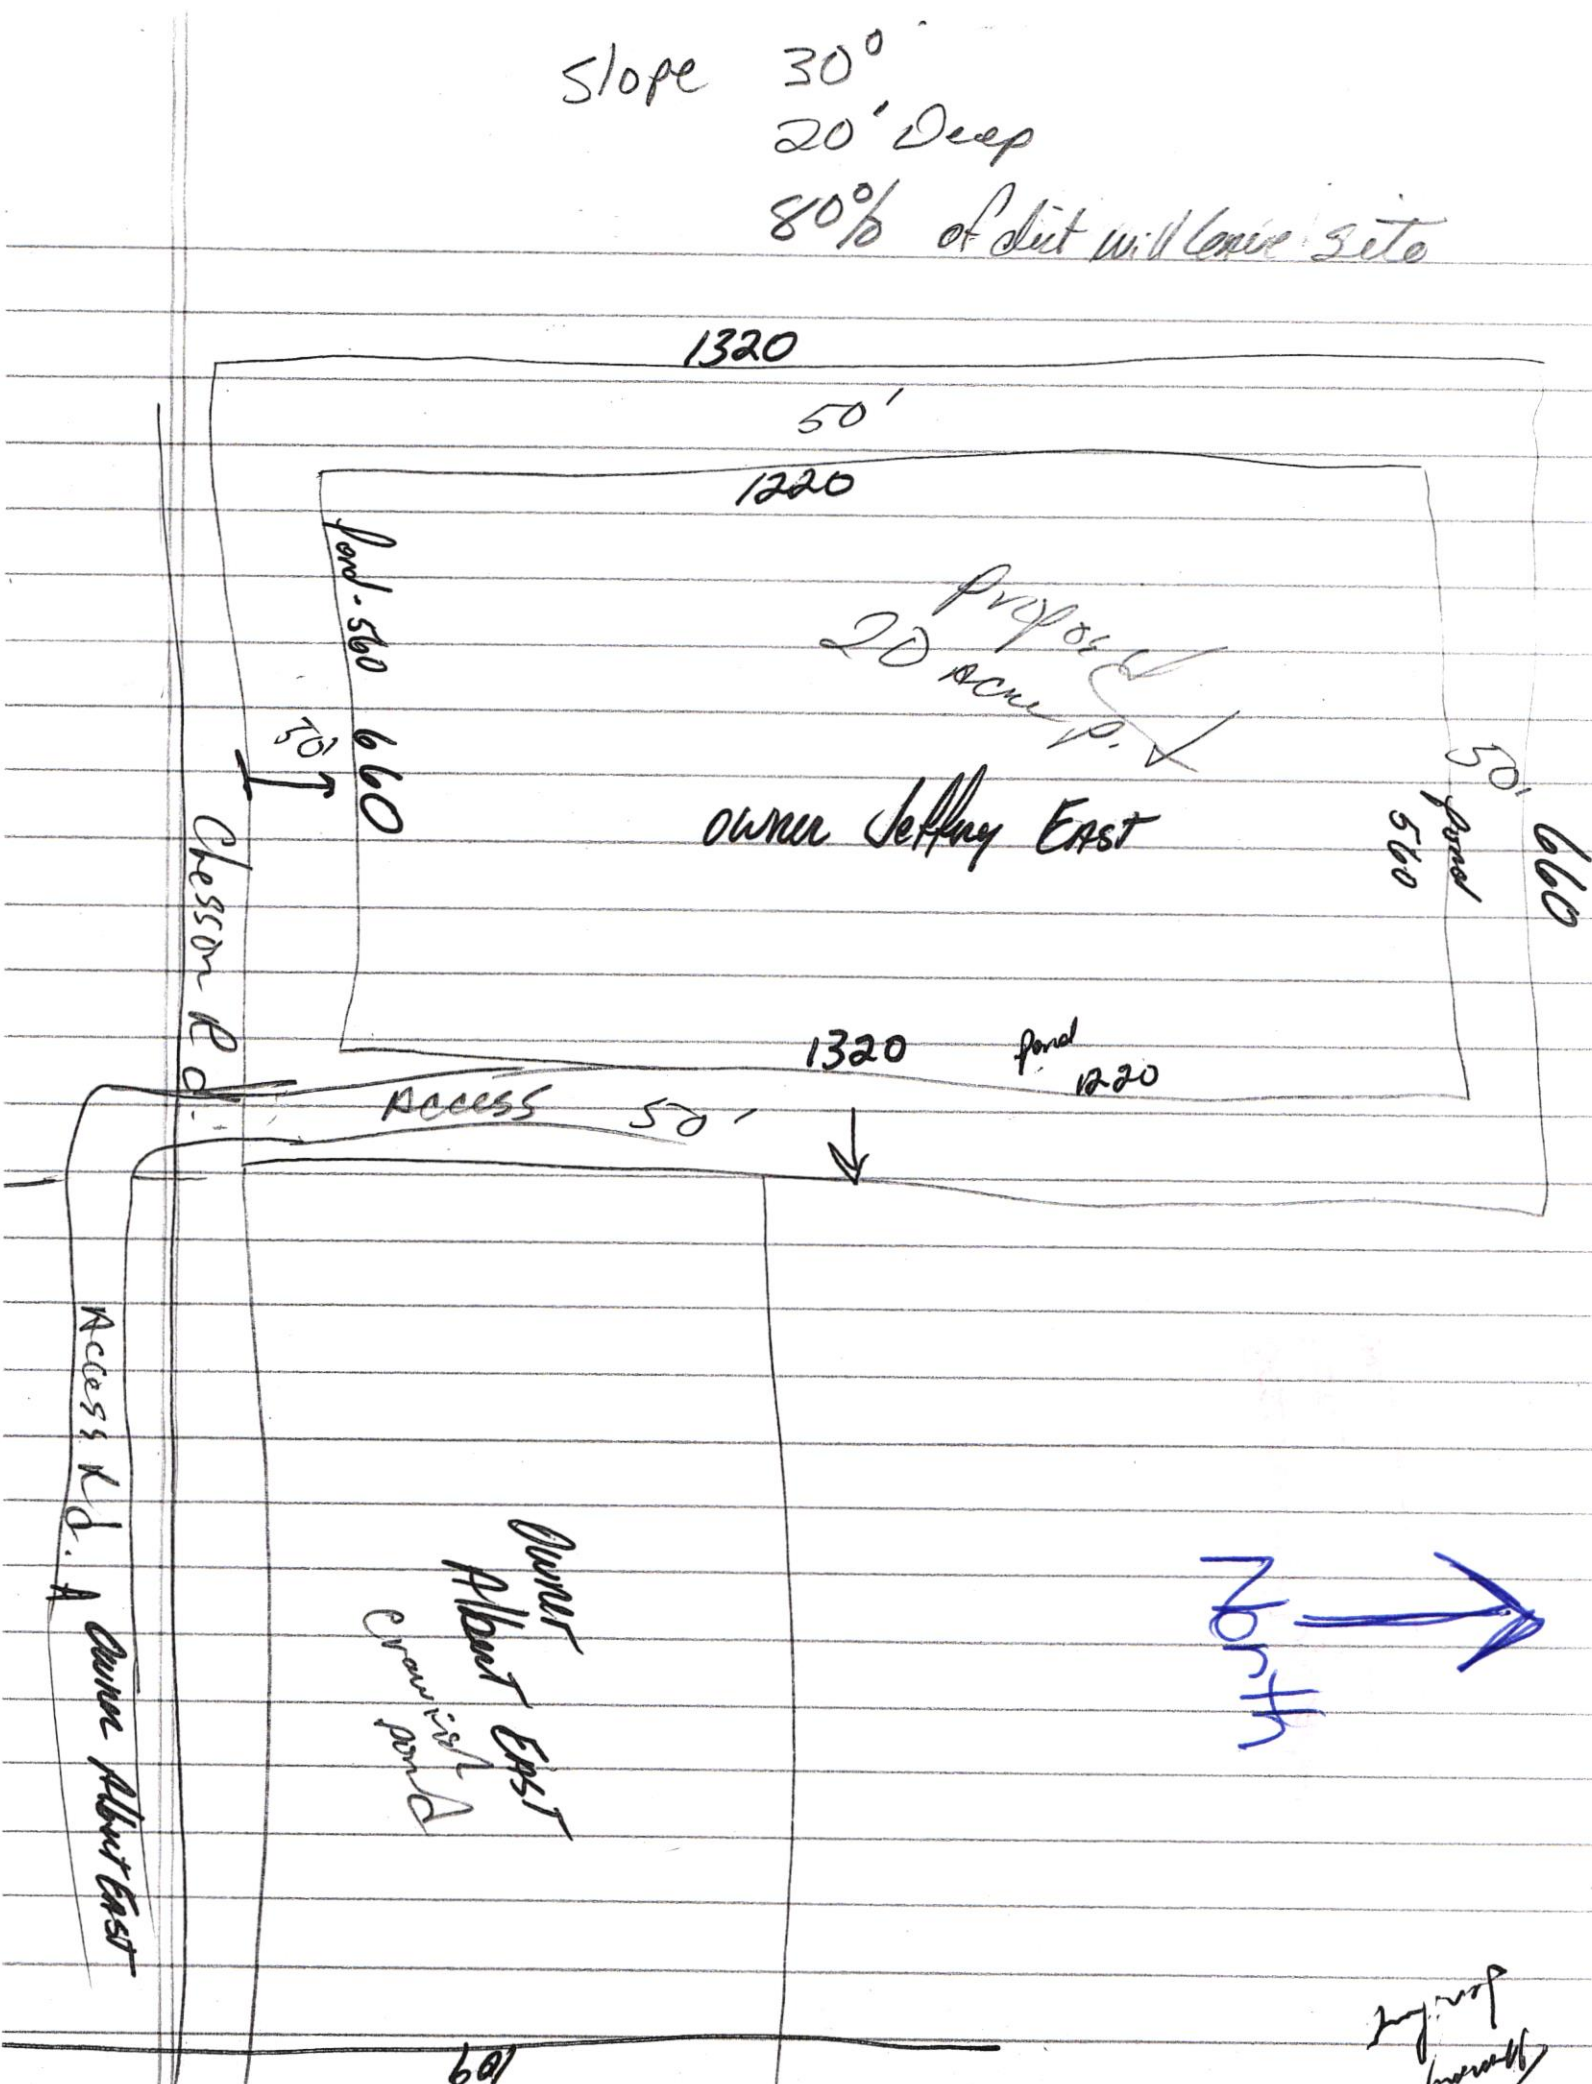 Slope 30°
20' Deep
80% of dirt will leave site
1320
50'
1220
pond - 560 660
50'
Proposed
20 acre pit
50'
pond
560
660
owner Jeffrey EAST
Chesson Rd.
1320 pond
1220
Access 50'
Access Rd. A owner Albert East
Owner
Albert EAST
Crawfish
pond
North
109